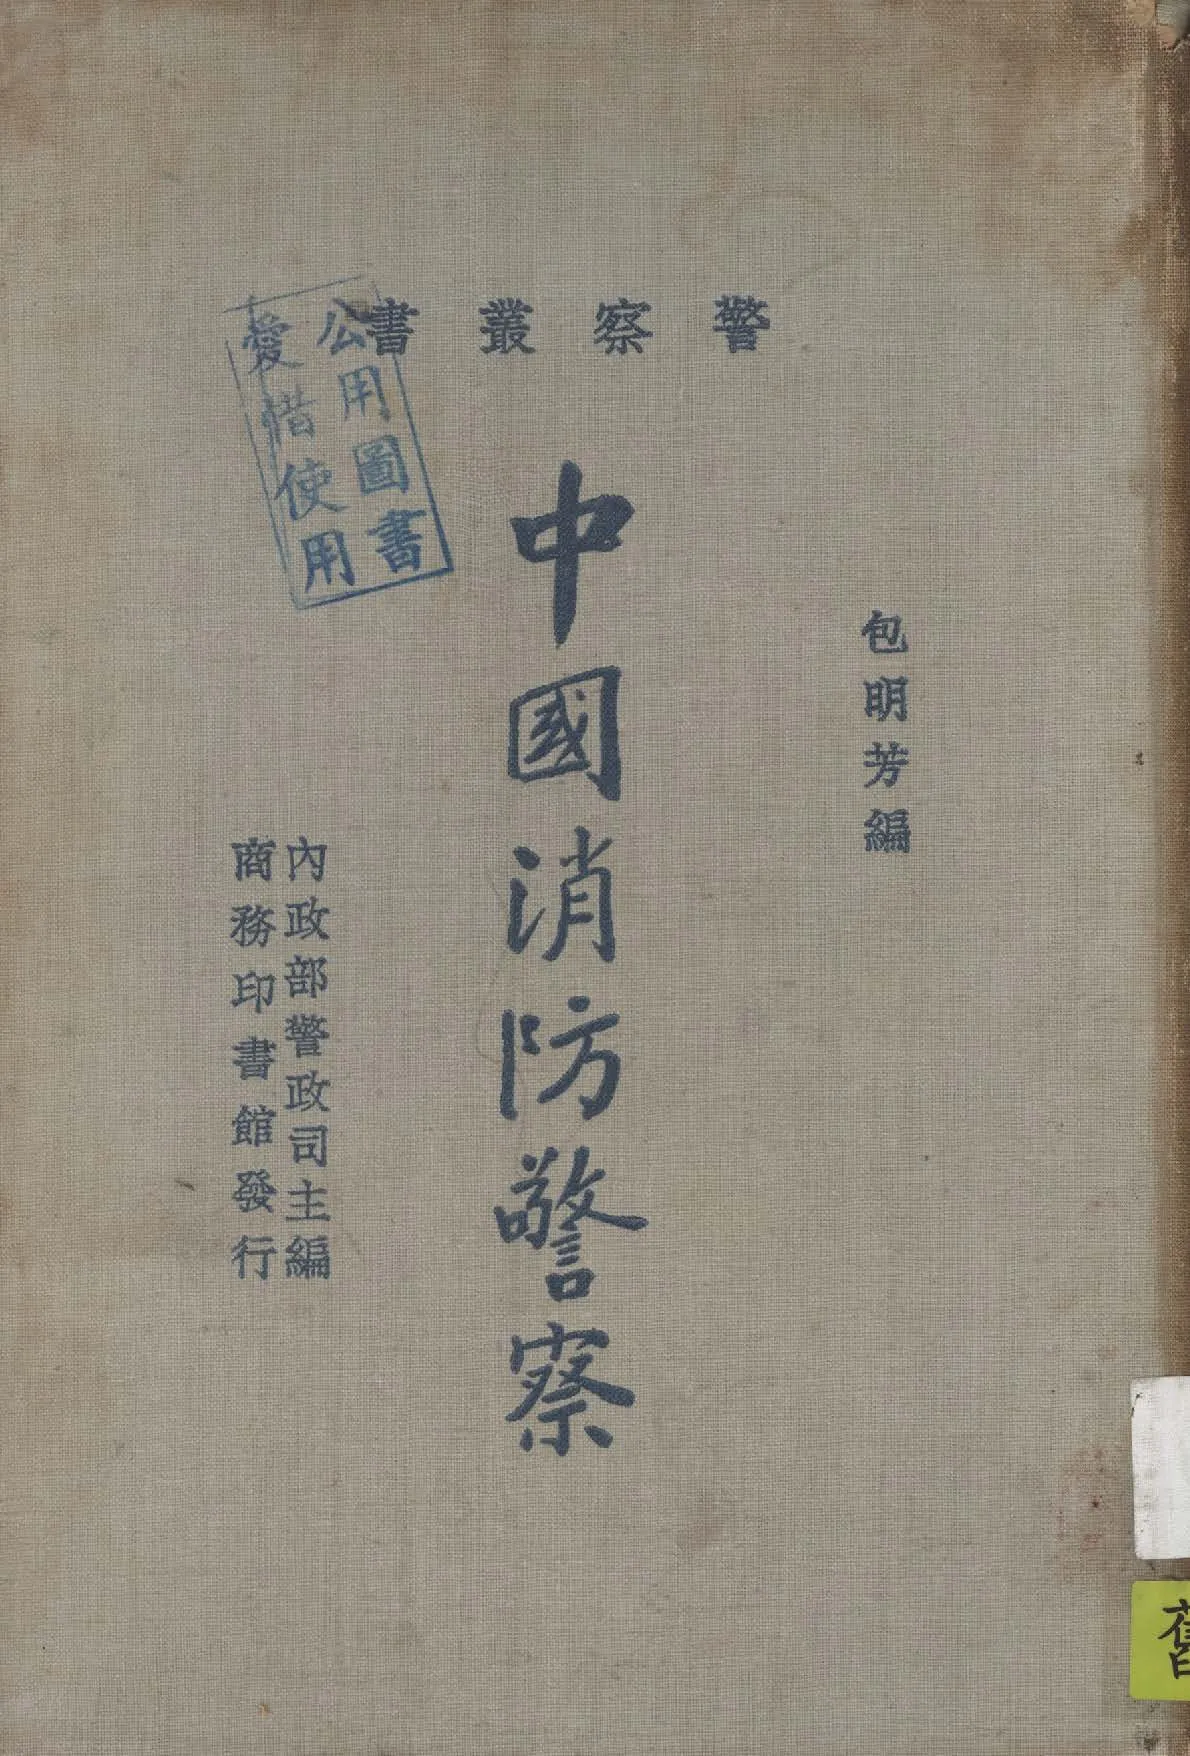 警察叢書
包明芳編
中國消防警察
內政部警政司主編
商務印書館發行
公用圖書
愛惜使用
舊